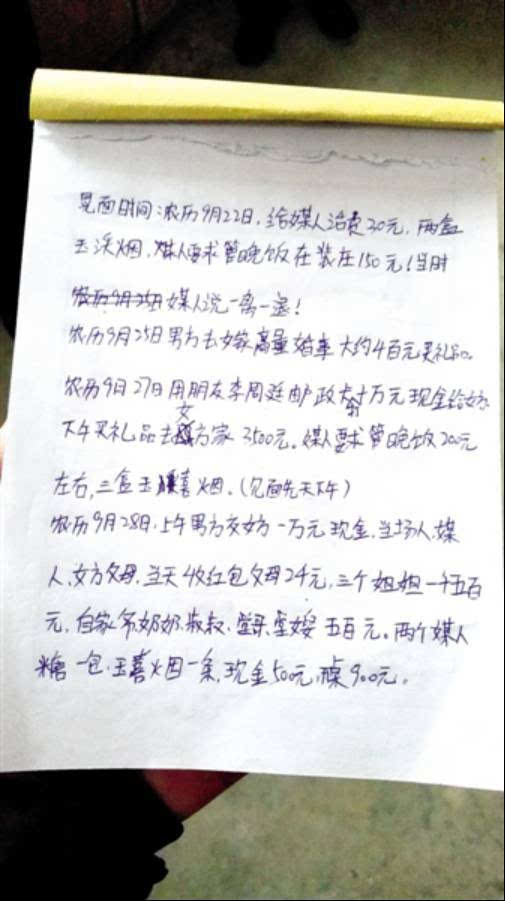 见面时间:农历9月22日,给媒人治费30元,两盒
玉溪烟,媒人要求管晚饭在装在150元!当时
农历9月25日媒人说一离一退!
农历9月25日男方去女家商量婚事大约4百元买礼品。
农历9月27日用朋友李周廷邮政卡万元现金给女
下午买礼品去女方家3500元。媒人要求管晚饭200元
左右,三盒玉喜烟.(见面先天下午)
农历9月28日,上午男方交女方一万元现金,当场人,媒
人,女方父母,当天4收红包父母2千元,三个姐姐一千五百
元,自家爷奶奶,叔叔,堂哥,堂嫂五百元。两个媒人
糖一包,玉喜烟一条,现金500元,桌900元。